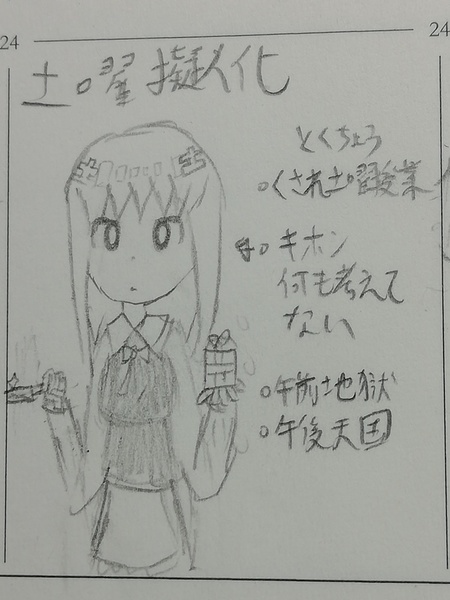 24
24
土曜擬人化
とくちょう
。くされ土曜授業
。キホン
何も考えて
ない
。午前地獄
。午後天国